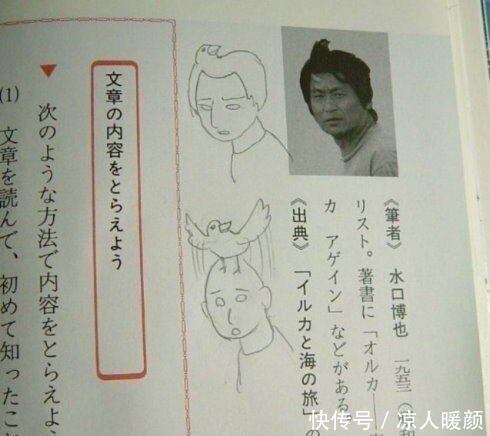 《筆者》 水口博也 一九五三(
リスト。著書に「オルカ
カ アゲイン」などがある
《出典》 「イルカと海の旅」の
文章の内容をとらえよう
▼ 次のような方法で内容をとらえよ、
(1) 文章を読んで、初めて知ったこと
快传号/凉人暖颜